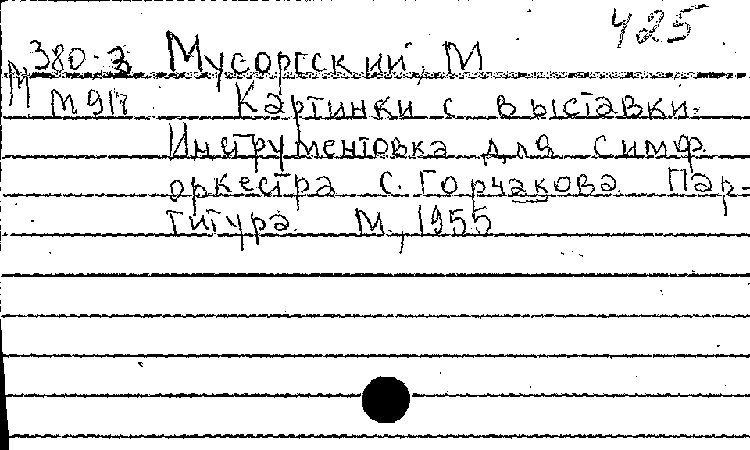 425
380-3 Мусоргский, М
М М917 Картинки с выставки.
Инструментовка для симф.
оркестра С. Горчакова Пар-
титура М., 1955